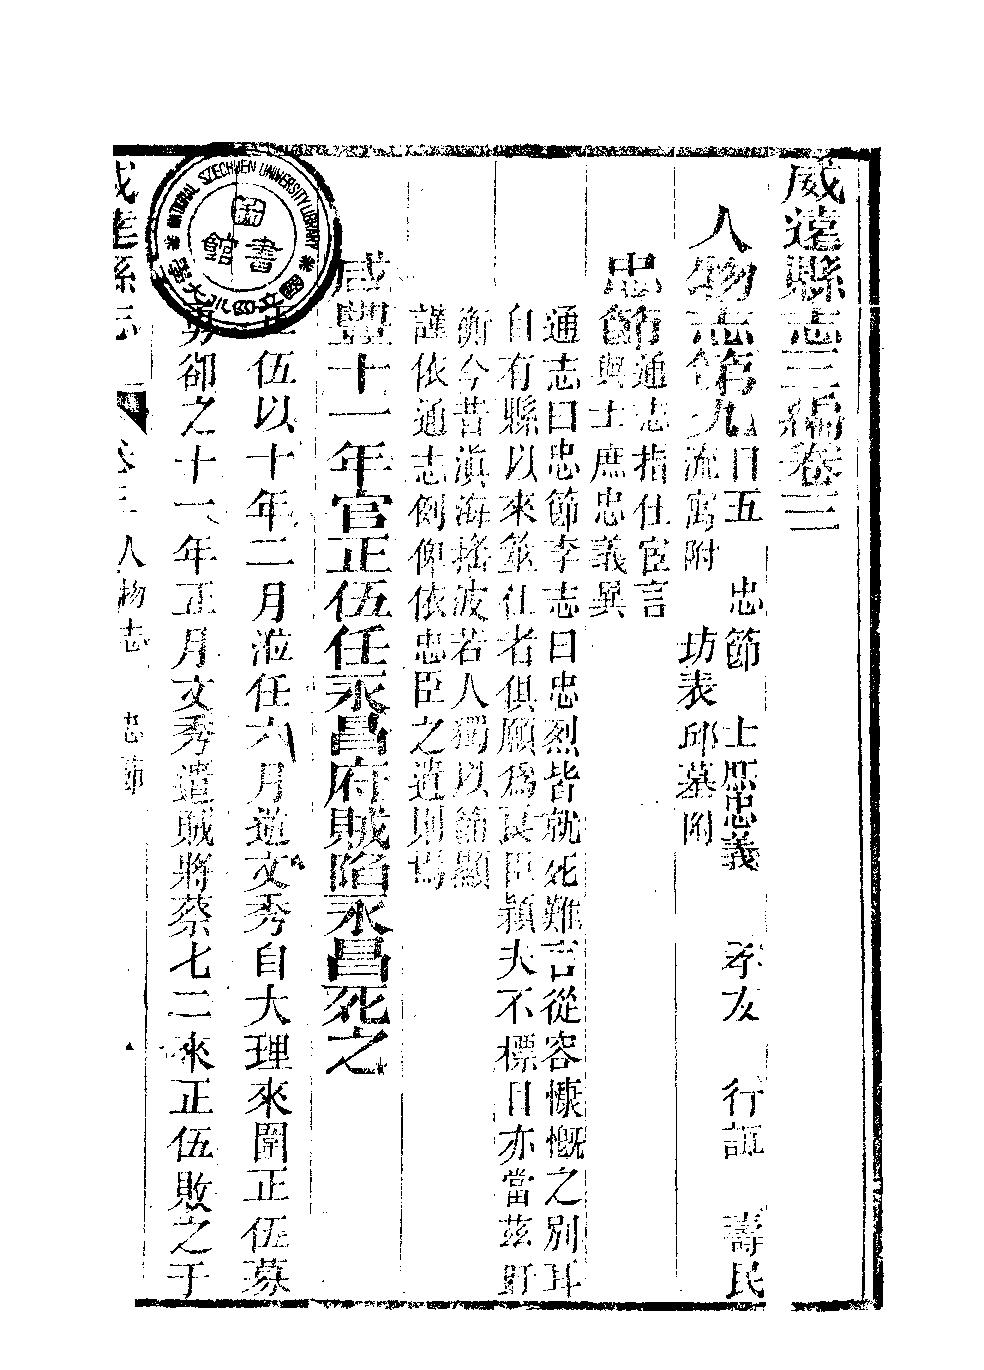 威遠縣志三編卷三
人物志第九目五 忠節 士庶忠義 孝友 行誼 壽民
流寓附 坊表邱墓附
忠節通志指仕宦言
與士庶忠義異
通志曰忠節李志曰忠烈皆就死難言從容慷慨之別耳
自有縣以來筮仕者俱願為良臣顧夫不標目亦當茲盱
衡今昔滇海搖波若人獨以節顯
謹依通志例俾依忠臣之遺則焉
咸豐十一年官正伍任永昌府賊陷永昌死之
正伍以十年二月涖任六月逆文秀自大理來圍正伍募
勇卻之十一年正月文秀遣賊將蔡七二來正伍敗之于
威遠縣志 卷三 人物志 忠節
NATIONAL SZECHUEN UNIVERSITY LIBRARY
國立四川大學
圖書館